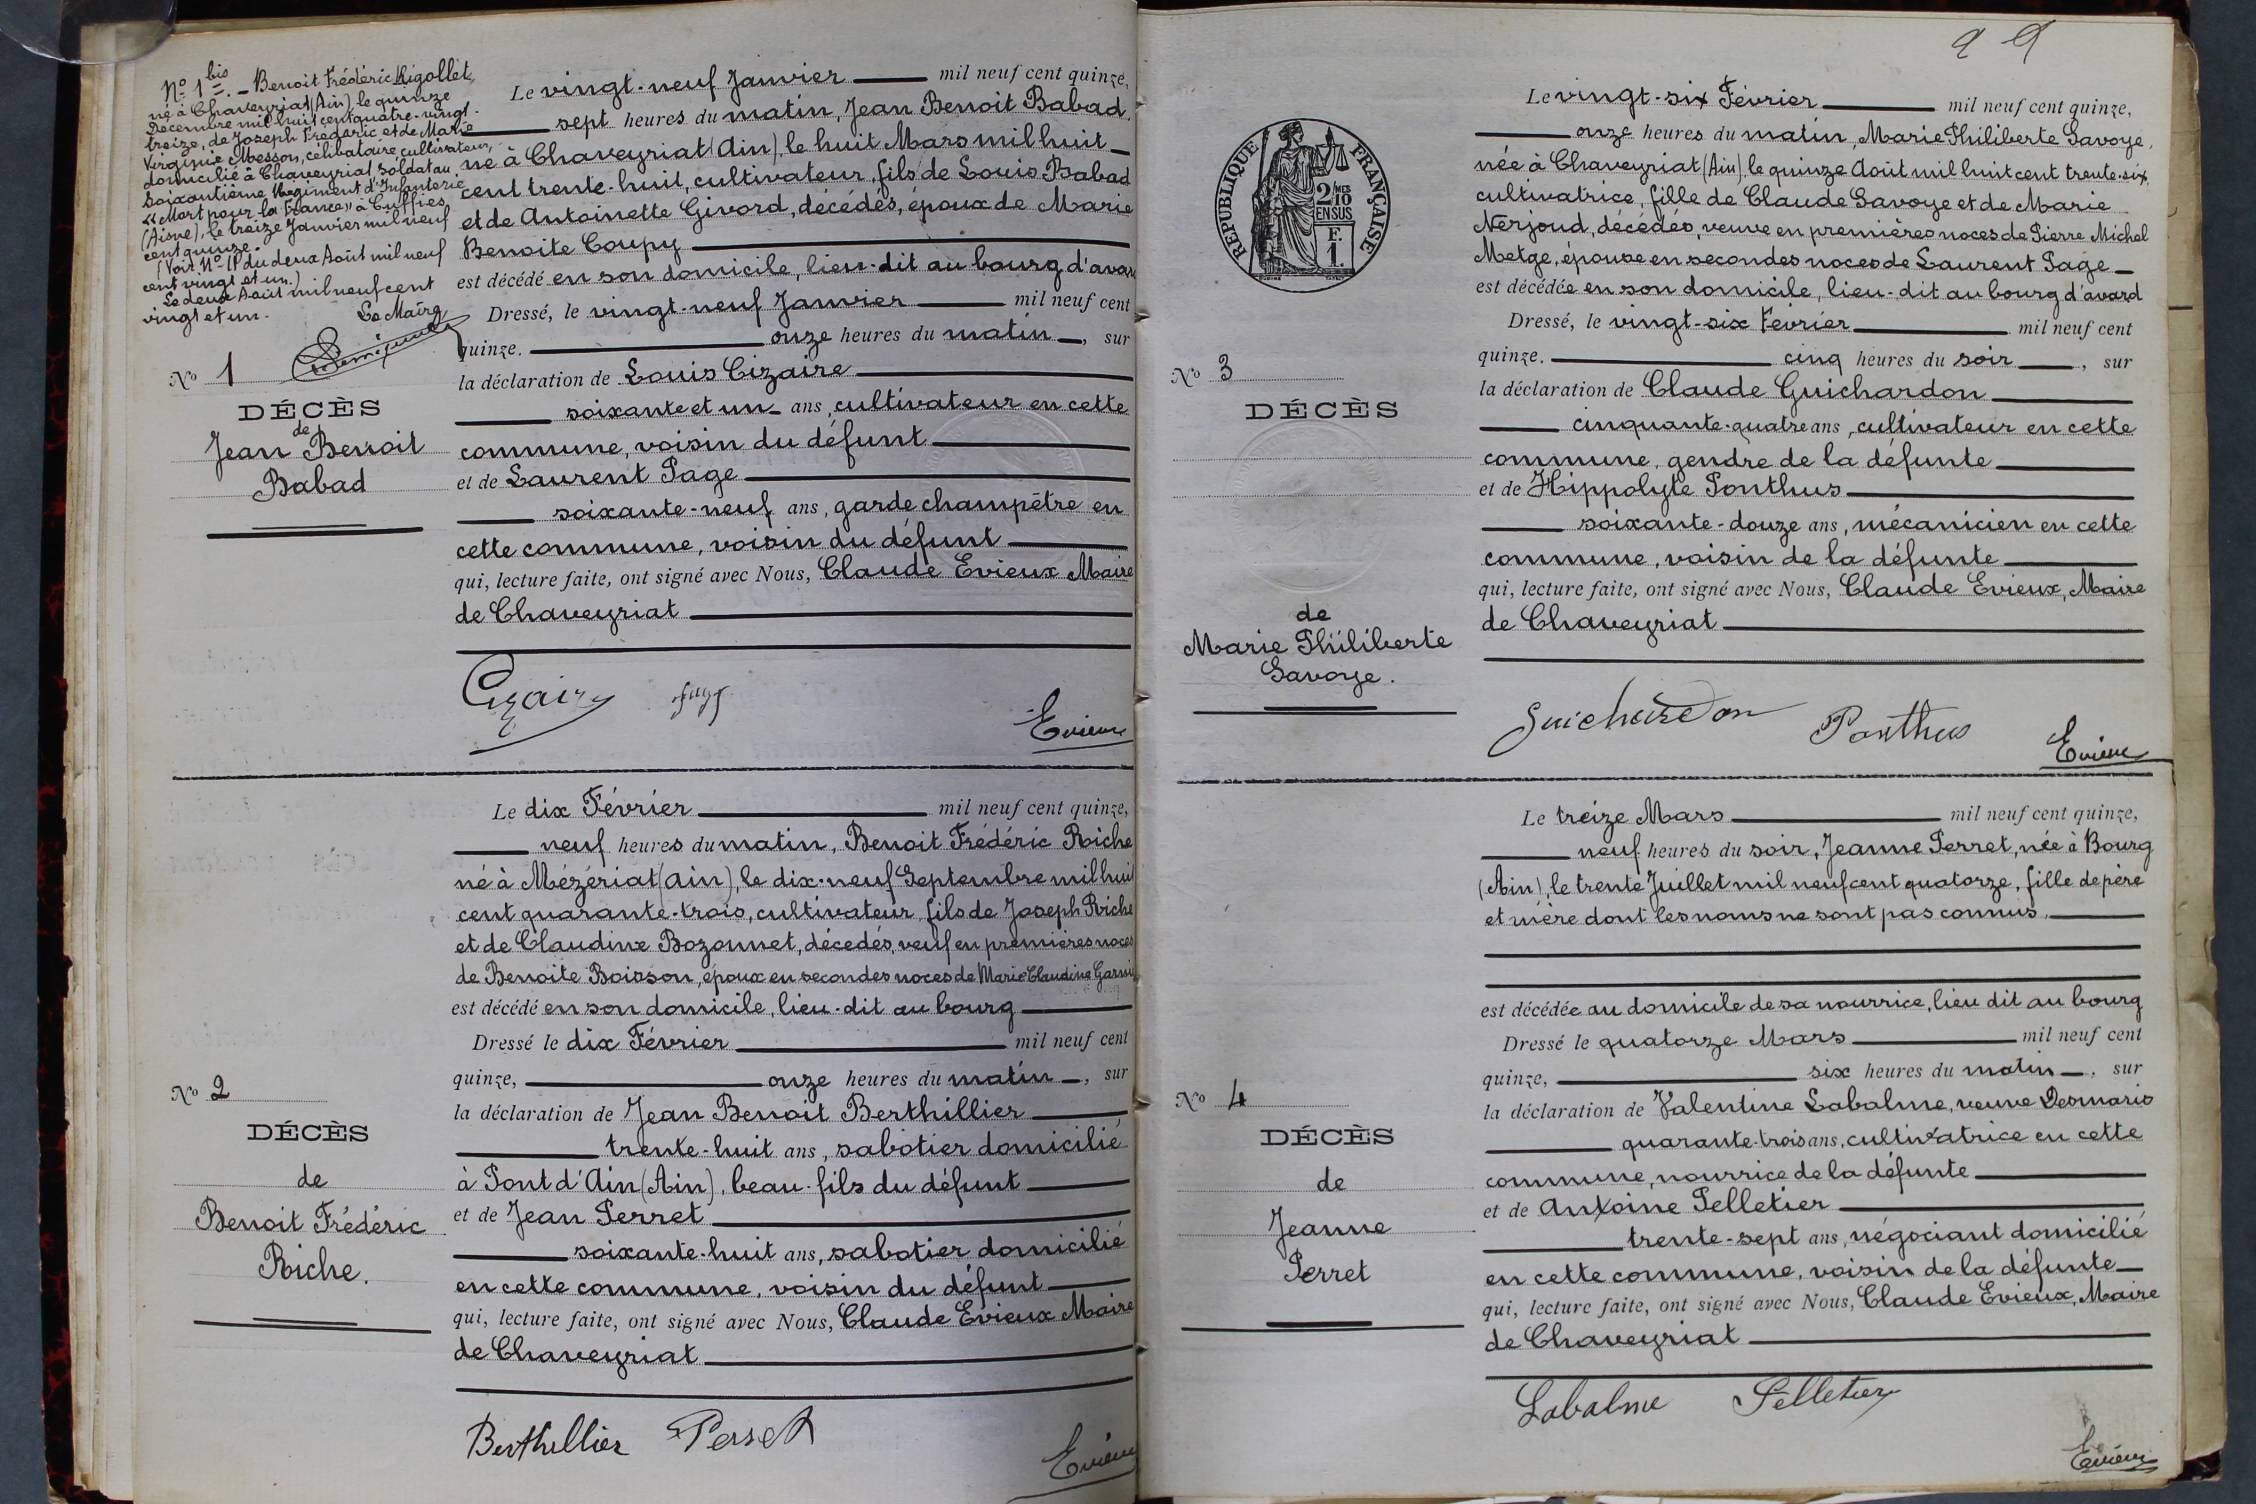 No 1 bis. - Benoit Frédéric Rigollet,
né à Chaveyriat (Ain), le quinze
Décembre mil huit cent quatre-vingt-
treize, de Joseph Frédéric et de Marie
Virginie Messon, célibataire, cultivateur,
domicilié à Chaveyriat, soldat au
soixantième Régiment d'Infanterie
« Mort pour la France » à Cuffies
(Aisne), le treize Janvier mil neuf
cent quinze.
(Voir No - 11 du deux Août mil neuf
cent vingt et un.)
Le deux Août mil neuf cent
vingt et un.
Le Maire
No 1
DÉCÈS
de
Jean Benoit
Babad
Le vingt-neuf Janvier mil neuf cent quinze,
sept heures du matin, Jean Benoit Babad,
né à Chaveyriat (Ain), le huit Mars mil huit
cent trente-huit, cultivateur, fils de Louis Babad
et de Antoinette Givord, décédés, époux de Marie
Benoite Coupy
est décédé en son domicile, lieu-dit au bourg d'avard
Dressé, le vingt-neuf Janvier mil neuf cent
quinze. onze heures du matin, sur
la déclaration de Louis Cizaire
soixante et un ans, cultivateur en cette
commune, voisin du défunt
et de Laurent Page
soixante-neuf ans, garde champêtre en
cette commune, voisin du défunt
qui, lecture faite, ont signé avec Nous, Claude Evieux Maire
de Chaveyriat
Cizaire Page
Evieux
No 2
DÉCÈS
de
Benoit Frédéric
Riche.
Le dix Février mil neuf cent quinze,
neuf heures du matin, Benoit Frédéric Riche
né à Mézériat (Ain), le dix-neuf Septembre mil huit
cent quarante-trois, cultivateur, fils de Joseph Riche
et de Claudine Bozonnet, décédés, veuf en premières noces
de Benoite Boisson, époux en secondes noces de Marie Claudine
est décédé en son domicile, lieu-dit au bourg
Dressé le dix Février mil neuf cent
quinze, onze heures du matin, sur
la déclaration de Jean Benoit Berthillier
trente-huit ans, sabotier domicilié
à Pont d'Ain (Ain), beau-fils du défunt
et de Jean Perret
soixante-huit ans, sabotier domicilié
en cette commune, voisin du défunt
qui, lecture faite, ont signé avec Nous, Claude Evieux Maire
de Chaveyriat
Berthillier Perret
Evieux
RÉPUBLIQUE FRANÇAISE
2/10 MES
EN SUS
F.
1.
No 3
DÉCÈS
de
Marie Philiberte
Savoye.
Le vingt-six Février mil neuf cent quinze,
onze heures du matin, Marie Philiberte Savoye,
née à Chaveyriat (Ain), le quinze Août mil huit cent trente-six,
cultivatrice, fille de Claude Savoye et de Marie
Nerjoud, décédés, veuve en premières noces de Pierre Michel
Metge, épouse en secondes noces de Laurent Page
est décédée en son domicile, lieu-dit au bourg d'avard
Dressé, le vingt-six Février mil neuf cent
quinze. cinq heures du soir, sur
la déclaration de Claude Guichardon
cinquante-quatre ans, cultivateur en cette
commune, gendre de la défunte
et de Hippolyte Ponthus
soixante-douze ans, mécanicien en cette
commune, voisin de la défunte
qui, lecture faite, ont signé avec Nous, Claude Evieux, Maire
de Chaveyriat
Guichardon Ponthus
Evieux
No 4
DÉCÈS
de
Jeanne
Perret
Le treize Mars mil neuf cent quinze,
neuf heures du soir, Jeanne Perret, née à Bourg
(Ain), le trente Juillet mil neuf cent quatorze, fille de père
et mère dont les noms ne sont pas connus.
est décédée au domicile de sa nourrice, lieu dit au bourg
Dressé le quatorze Mars mil neuf cent
quinze, six heures du matin, sur
la déclaration de Valentine Labalme, veuve Desmaris
quarante-trois ans, cultivatrice en cette
commune, nourrice de la défunte
et de Antoine Pelletier
trente-sept ans, négociant domicilié
en cette commune, voisin de la défunte
qui, lecture faite, ont signé avec Nous, Claude Evieux, Maire
de Chaveyriat
Labalme Pelletier
Evieux